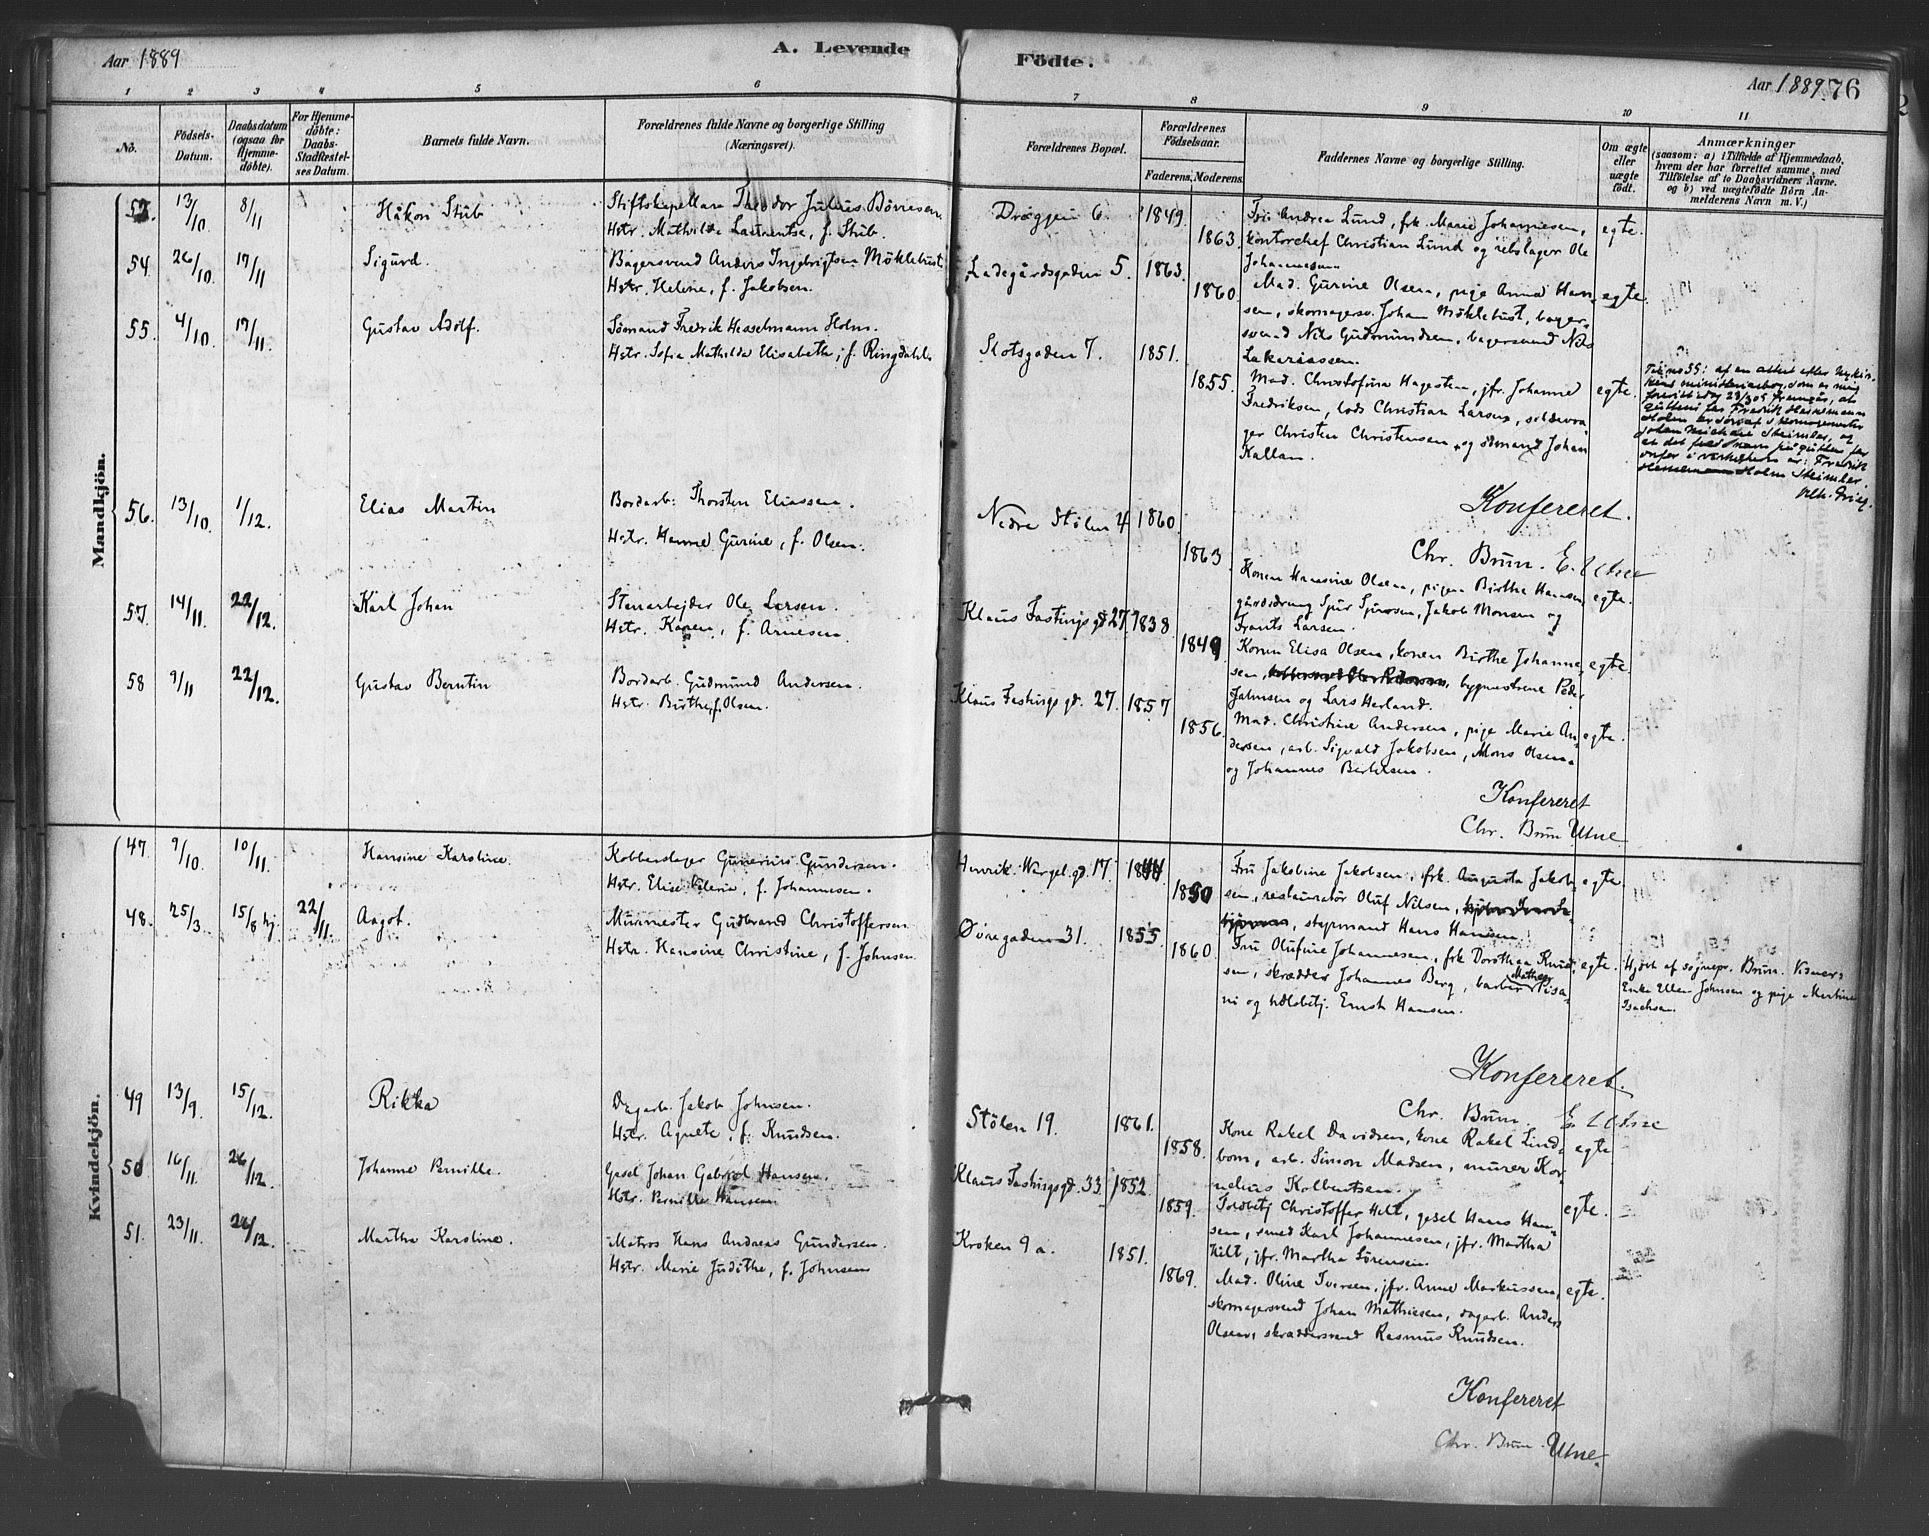 Aar 1889
A. Levende
Födte.
Aar 1889.
76
1 2 3 4 5 6 7 8 9 10 11
No.
Födsels-
Datum.
Daabsdatum
(ogsaa for
Hjemme-
döbte).
For Hjemme-
döbte:
Daabs-
Stadfæstel-
ses Datum.
Barnets fulde Navn.
Forældrenes fulde Navne og borgerlige Stilling
(Næringsvei).
Forældrenes Bopæl.
Forældrenes
Födselsaar.
Faderens.
Moderens.
Faddernes Navne og borgerlige Stilling.
Om ægte
eller
uægte
födt.
Anmærkninger
(saasom: a) i Tilfælde af Hjemmedaab,
hvem der har forrettet samme, med
Tilföielse af to Daabsvidners Navne.
og b) ved uægtefödte Börn An-
melderens Navn m. V.)
Mandkjön.
53 13/10 8/11 Håkon Stub
Stiftskapellan Theodor Julius Börresen
Hstr. Mathilde Laurentse, f. Stub.
Dræggen 6. 1849. 1863.
Fru Andrea Lund, frk. Marie Johannesen,
kontorchef Christian Lund og rebslager Ole
Johannesen
egte.
54. 26/10 17/11 Sigurd.
Bagersvend Anders Ingebrigtsen Möklebust
Hstr. Helene, f. Jakobsen.
Ladegårdsgaden 5. 1863. 1860.
Mad. Gurine Olsen, pige Anna Han-
sen, skomagersv. Johan Möklebust, bager-
svend Nils Gudmundsen, bagersvend Nils
Zakariassen.
egte.
55. 4/10 17/11 Gustav Adolf.
Sömand Fredrik Hesselmann Holm.
Hstr. Sofia Mathilda Elisabeth, f. Ringdahl.
Slotsgaden 7. 1851. 1855.
Mad. Christofina Hagesten, jfr. Johanne
Fredriksen, lods Christian Larsen,
Christen Christensen og sömand Johan
Kallan.
egte.
Til no 55: af en attest efter Nykir-
kens ministerialbog, som er mig
forevist idag 23/3 05 fremgår, at
guttens far, Fredrik Hesselmann
Holm er sön af skomagermester
Johan
at det
onfor i virkeligheden er: Fredrik
Hesselmann Holm
Vilh. Grieg.
56. 13/10 1/12. Elias Martin
Bordarb: Thorsten Eliassen.
Hstr. Hanne Gurine, f. Olsen.
Nedre Stölen 4 1860 1863.
Konferet.
Chr. Brun. E. Utne
Konen Hansine Olsen, pigen Birthe Hansen
gårdsdreng Sjur Sjursen, Jakob Monsen og
Frants Larsen.
egte.
57. 14/11. 22/12. Karl Johan
Stenarbejder Ole Larsen.
Hstr. Karen, f. Arnesen.
Klaus Fastings gd 27. 1838. 1849
Konen Elisa Olsen, konen Birthe Johanne-
sen, bygmestrene Peder
Jahnsen og Lars Herland.
egte.
58 9/11 22/12. Gustav Berntin
Bordarb. Gudmund Andersen.
Hstr. Birthe, f. Olsen.
Klaus Fastings gd. 27. 1857 1856.
Mad. Christine Andersen, pige Marie An-
dersen, arb. Sigvald Jakobsen, Mons Olsen
og Johannes Bertelsen.
egte.
Konfereret
Chr. Brun Utne
Kvindekjön.
47. 9/10. 10/11. Hansine Karoline.
Kobberslager Gunerius Gundersen.
Hstr. Elise Valerie, f. Johannesen.
Henrik Wergel. gd. 17. 1844 1850
Fru Jakobine Jakobsen, frk. Augusta Jakob-
sen, restauratör Oluf Nilsen,
stopmand Hans Hansen.
egte.
48. 25/3. 15/8 hj. 22/11. Aagot.
Murmester Gudbrand Christoffersen
Hstr. Hansine Christine, f. Johnsen.
Övregaden 31. 1855. 1860.
Fru Olufine Johannesen, frk Dorothea Knud-
sen, skrædder Johannes Berg, barber Mathias Pisa-
ni og toldbetj. Ernst Hansen.
egte.
Hjdöbt af sognepr. Brun. Vidner:
Enke Ellen Johnsen og pige Martine
Isachsen.
Konfereret.
Chr. Brun. E. Utne
49 13/9. 15/12. Rikka
Dagarb. Jakob Johnsen.
Hstr. Agnete, f. Knudsen.
Stölen 19. 1861. 1858.
Kone Rakel Davidsen, kone Rakel Lind-
bom, arb. Simon Madsen, murer Kor-
nelius Kolbentsen.
egte
50 16/11. 26/12. Johanne Pernille.
Gesel Johan Gabriel Hansen.
Hstr. Pernille Hansen
Klaus Fastingsgd. 33. 1852. 1859.
Toldbetj Christoffer Hilt, gesel Hans Han-
sen, smed Karl Johannesen, jfr. Martha
Hilt, jfr. Martha Sörensen.
egte.
51. 23/11. 26/12. Martha Karoline.
Matros Hans Andreas Gundersen.
Hstr. Marie Judithe, f. Johnsen
Kroken 9 a. 1851. 1869.
Mad. Oline Iversen, jfr. Anne Markussen,
skomagersvend Johan Mathiesen, dagarb. Anders
Olsen, skræddersvend Rasmus Knudsen.
egte.
Konfereret
Chr. Brun. Utne.